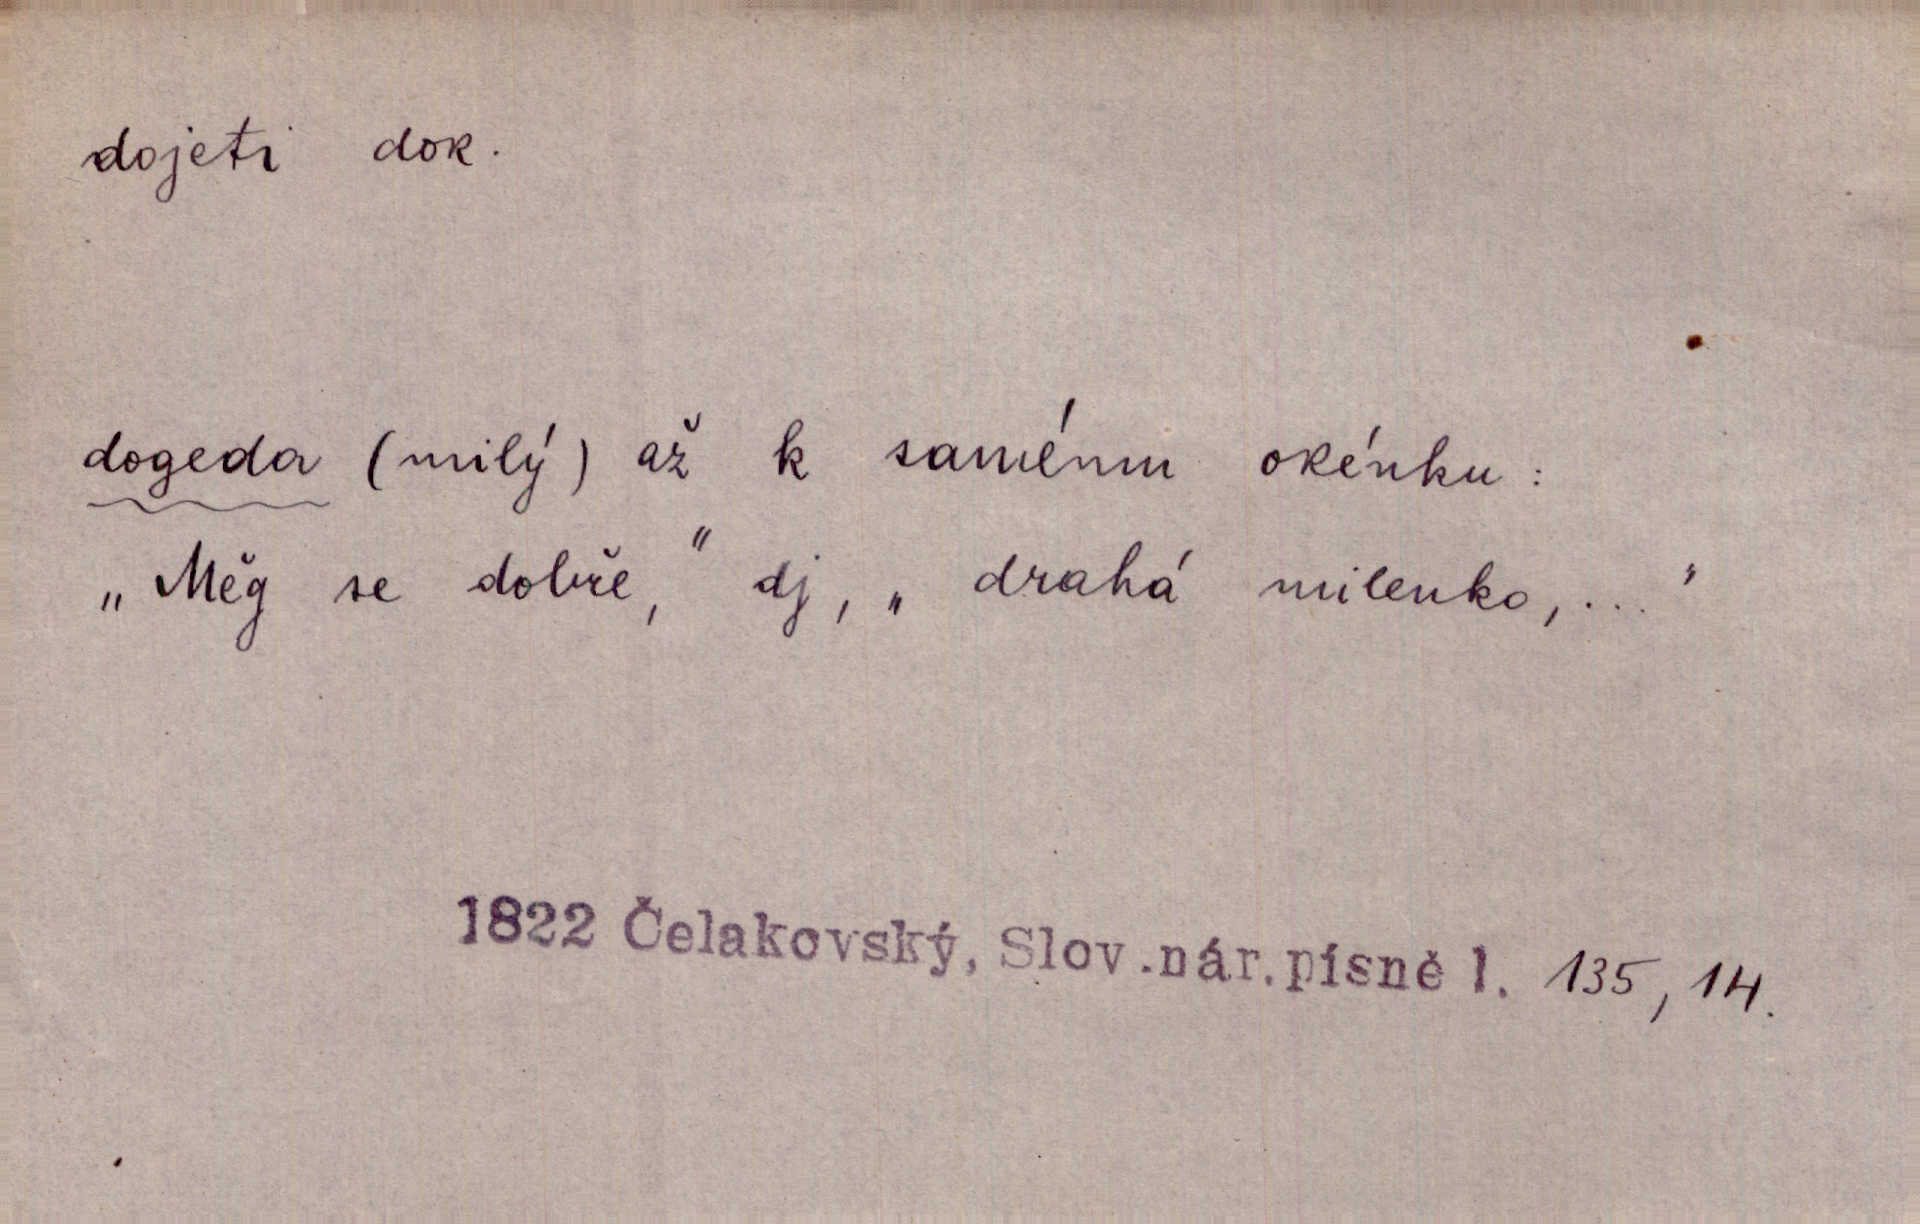 dojeti dok.
dogeda (milý) až k samému okénku:
„Měg se dobře,“ dj, „drahá milenko,...“
1822 Čelakovský, Slov.nár.písně l. 135, 14.